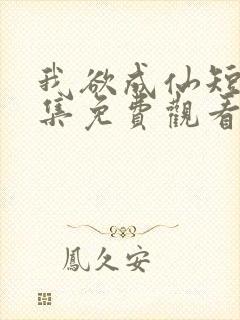 我欲成仙短
集免費觀看
鳳久安